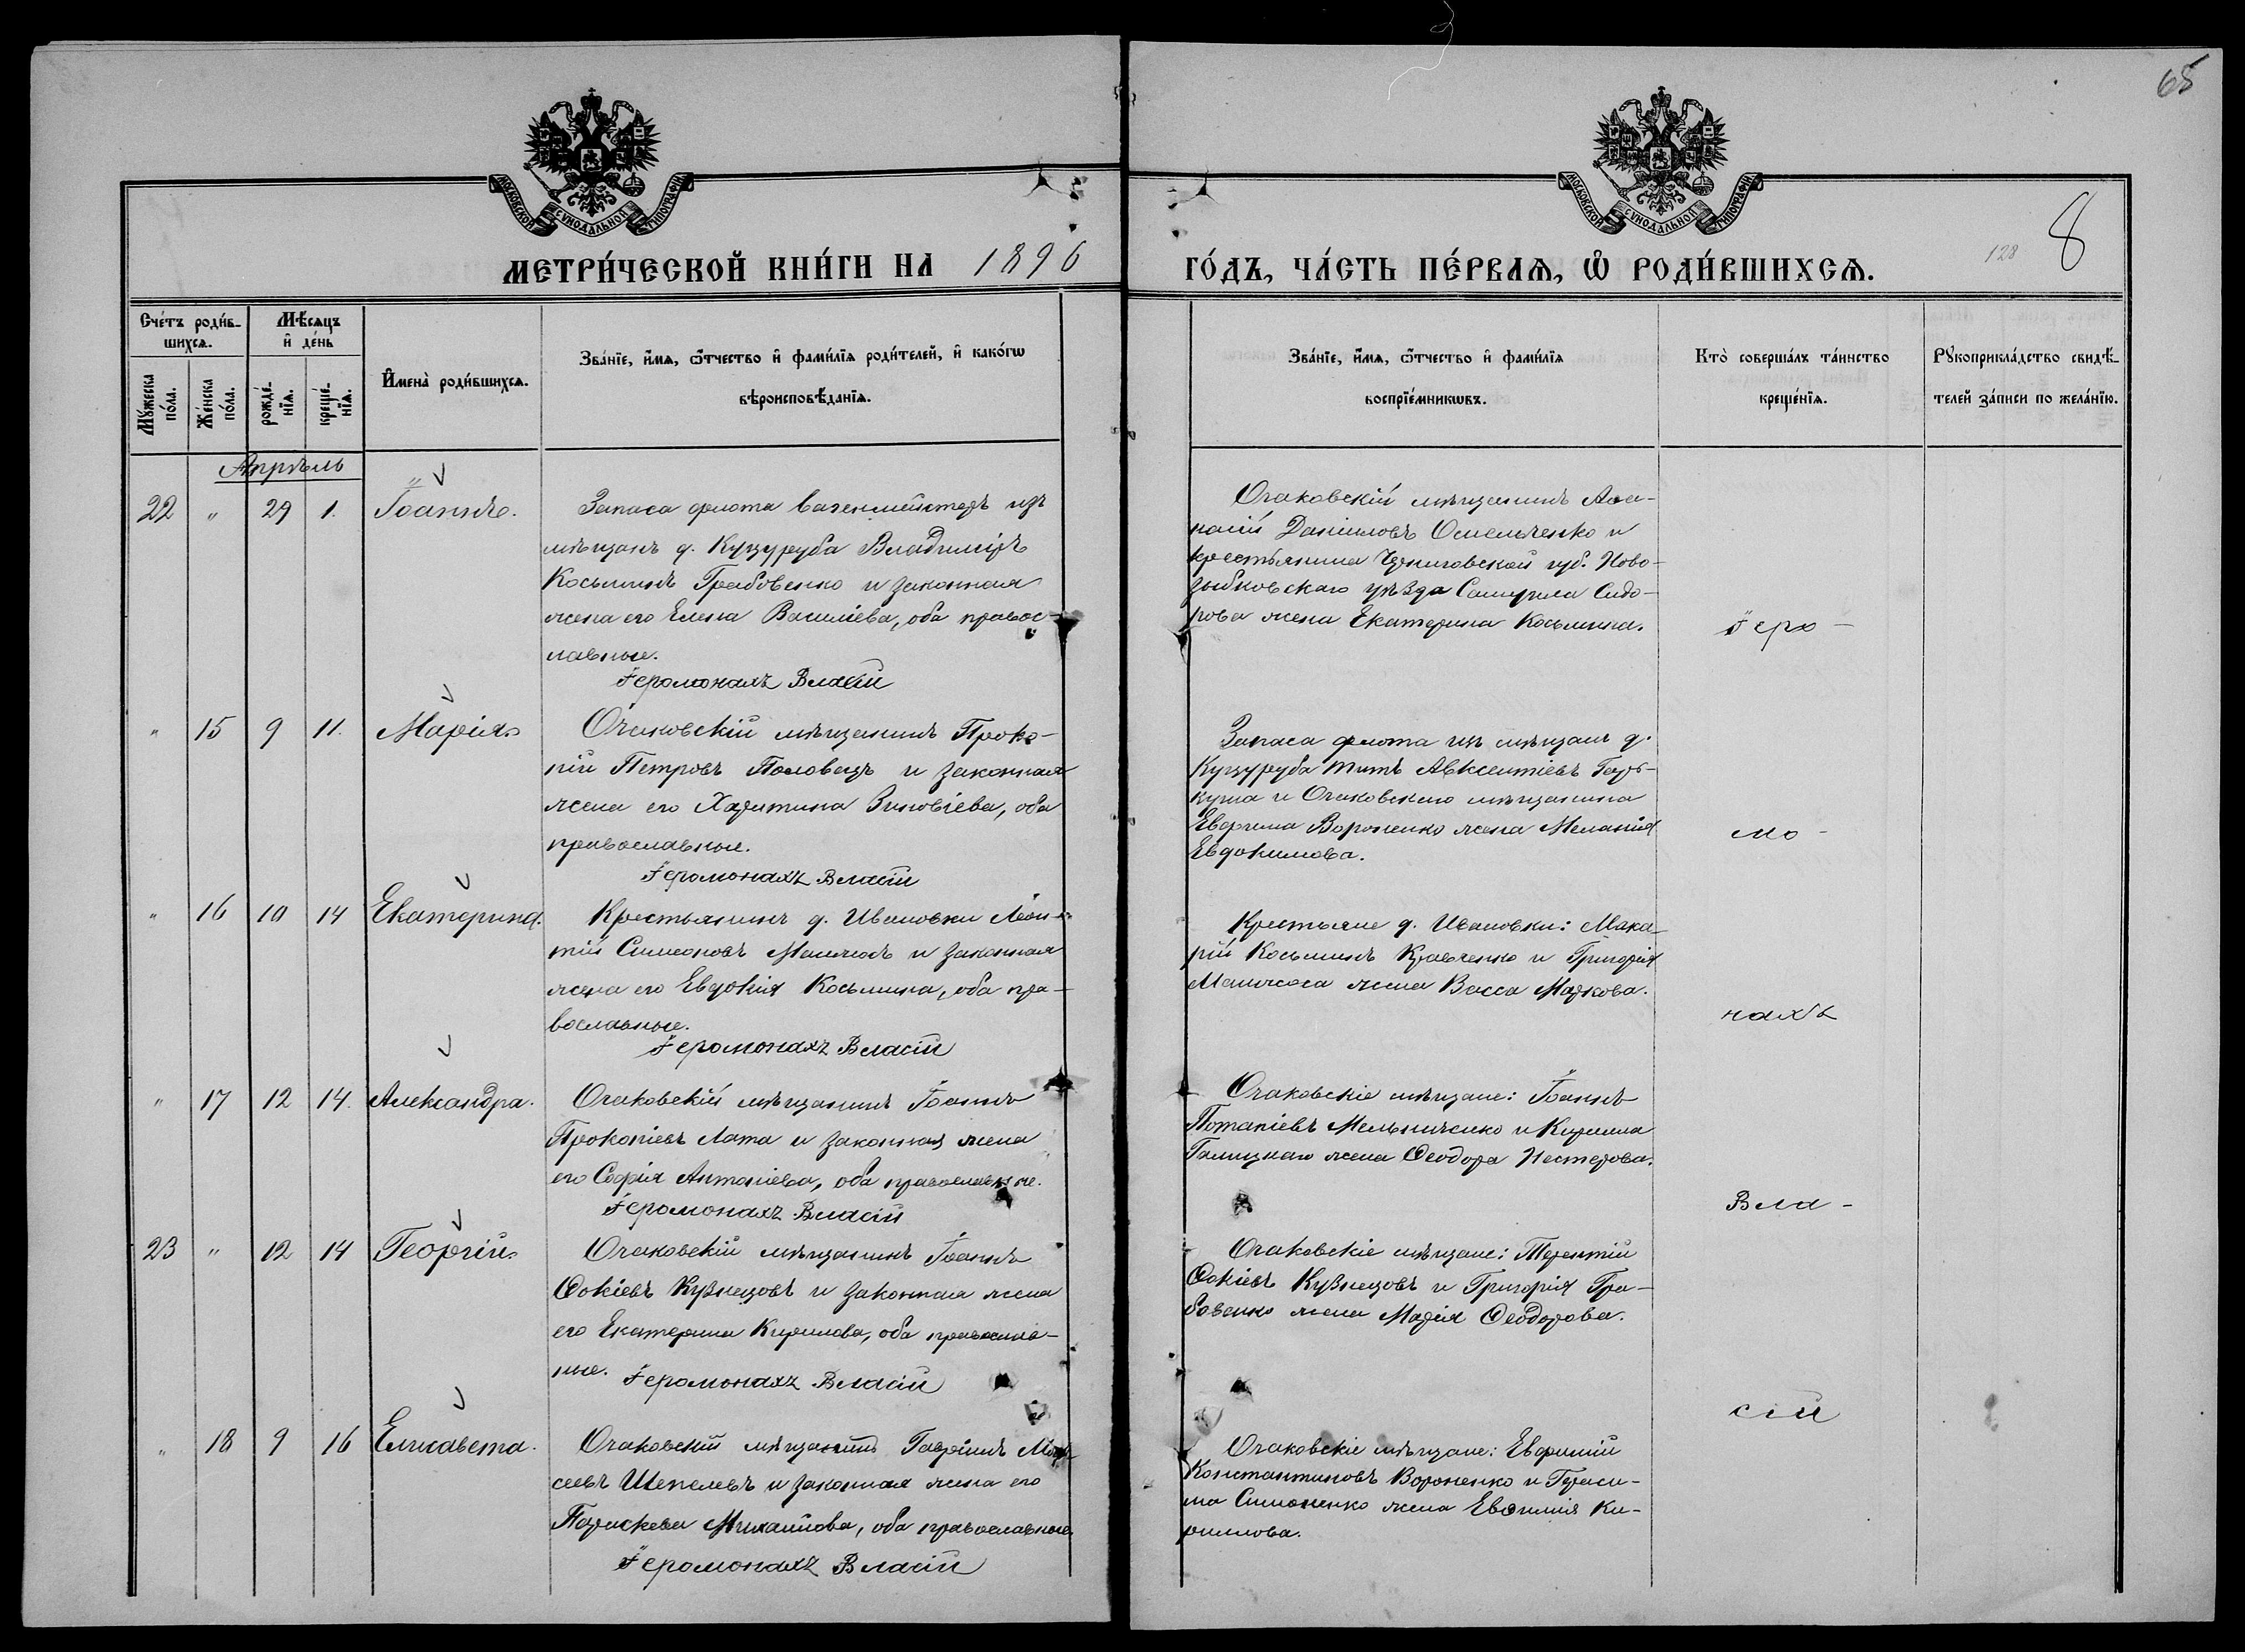 65
МОСКОВСКОЙ СѴНОДАЛЬНОЙ ТИПОГРАФІИ
МОСКОВСКОЙ СѴНОДАЛЬНОЙ ТИПОГРАФІИ
128 8
МЕТРИ́ЧЕСКОЙ КНИ́ГИ НА 1896
ГО́ДЪ, ЧА́СТЬ ПЕ́РВАѦ, Ѽ РОДИ́ВШИХСѦ.
Сче́тъ роди́в-
шихсѧ.
Мѣ́сѧцъ
и҆ де́нь
Мꙋ́жеска
по́ла.
Же́нска
по́ла.
рожде́-
нїѧ.
креще́-
нїѧ.
И҆мена̀ роди́вшихсѧ.
Зва́нїе, и҆́мѧ, ѻ҆́тчество и҆ фами́лїѧ роди́телей, и҆ како́гѡ
вѣроисповѣ́данїѧ.
Зва́нїе, и҆́мѧ, ѻ҆́тчество и҆ фами́лїѧ
воспрїе́мникѡвъ.
Кто̀ соверша́лъ та́инство
креще́нїѧ.
Рꙋкоприкла́дство свидѣ́-
телей за́писи по жела́нїю.
Апрѣль
22 " 29 1. Іоаннъ.
Запаса флота вахенмейстеръ изъ
мѣщанъ д. Куцуруба Владиміръ
Косьминъ Грабовенко и законная
жена его Елена Василіева, оба правос-
лавные.
Іеромонахъ Власій
Очаковскій мѣщанинъ Аѳа-
насій Даниіловъ Омельченко и
крестьянина Черниговской губ. Ново-
зыбковскаго уѣзда Самуила Сидо-
рова жена Екатерина Косьмина.
Іеро-
" 15 9 11. Марія.
Очаковскій мѣщанинъ Проко-
пій Петровъ Половецъ и законная
жена его Харитина Зиновіева, оба
православные.
Іеромонахъ Власій
Запаса флота изъ мѣщанъ д.
Куцуруба Титъ Авксентіевъ Гарь-
куша и Очаковскаго мѣщанина
Евфимія Вороненко жена Меланія
Евдокимова.
мо-
" 16 10 14 Екатерина.
Крестьянинъ д. Ивановки Леон-
тій Симеоновъ и законная
жена его Евдокія Косьмина, оба пра-
вославные.
Іеромонахъ Власій
Крестьяне д. Ивановки: Мака-
рій Косьминъ Кравченко и Григорія
жена Васса Маркова.
нахъ
" 17 12 14. Александра.
Очаковскій мѣщанинъ Іоаннъ
Прокопіевъ Лата и законная жена
его Софія Антоніева, оба православные.
Іеромонахъ Власій
Очаковскіе мѣщане: Іоаннъ
Потапіевъ Мельниченко и Кирилла
Галицкаго жена Ѳеодора Нестерова.
Вла-
23 " 12 14 Георгій.
Очаковскій мѣщанинъ Іоаннъ
Ѳокіевъ Кузнецовъ и законная жена
его Екатерина Кирилова, оба православ-
ные. Іеромонахъ Власій
Очаковскіе мѣщане: Терентій
Ѳокіевъ Кузнецовъ и Григорія Гра-
бовенко жена Марія Ѳеодорова.
сій
" 18 9 16 Елисавета.
Очаковскій мѣщанинъ Гавріилъ Мои-
сеевъ Шепелевъ и законная жена его
Параскева Михаилова, оба православные.
Іеромонахъ Власій
Очаковскіе мѣщане: Евфимій
Константиновъ Вороненко и Гераси-
ма Симоненко жена Евѳимія Ки-
риллова.